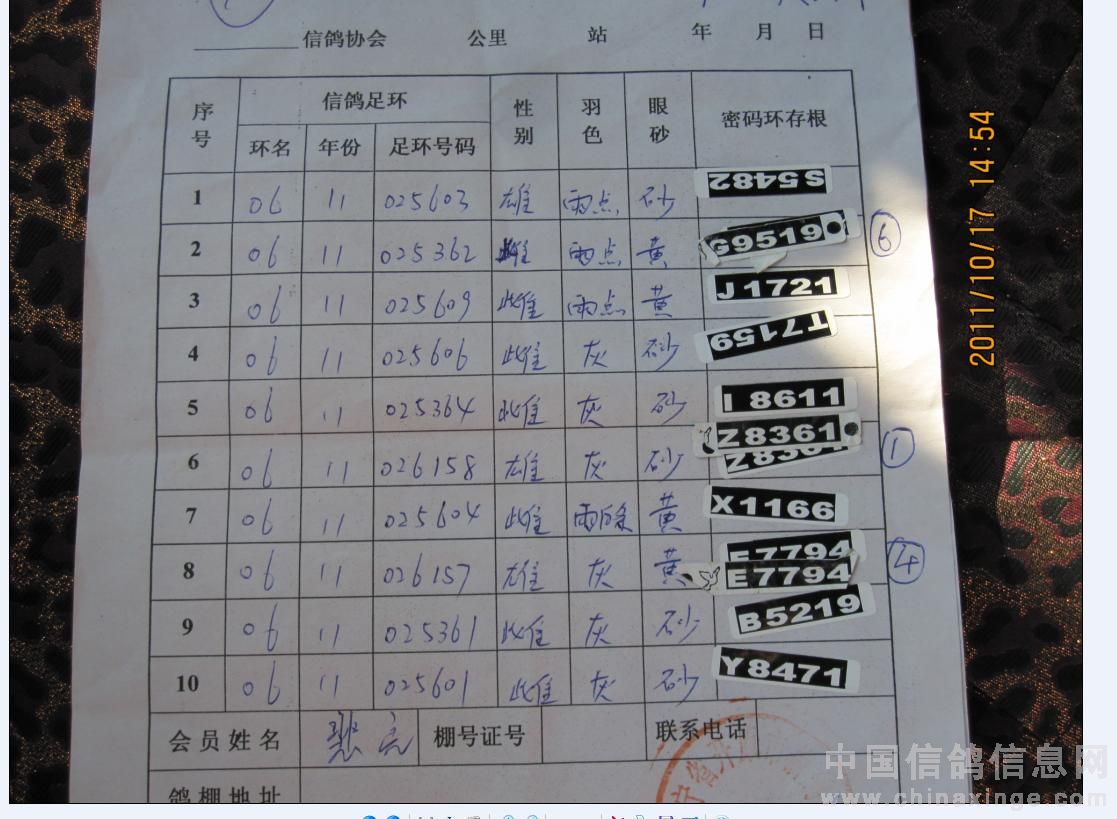 信鸽协会 公里 站 年 月 日
序号 信鸽足环 性别 羽色 眼砂 密码环存根
环名 年份 足环号码
1 06 11 025603 雄 雨点 砂 S5482
2 06 11 025362 雌 雨点 黄 G9519 ⑥
3 06 11 025609 雌 雨点 黄 J1721
4 06 11 025606 雌 灰 砂 T7159
5 06 11 025364 雌 灰 砂 I8611
6 06 11 026158 雄 灰 砂 Z8361 Z8361 ①
7 06 11 025604 雌 雨 黄 X1166
8 06 11 026157 雄 灰 黄 E7794 E7794 ④
9 06 11 025361 雌 灰 砂 B5219
10 06 11 025601 雌 灰 砂 Y8471
会员姓名 棚号证号 联系电话
鸽棚地址
2011/10/17 14:54
中国信鸽信息网
www.chinaxinge.com